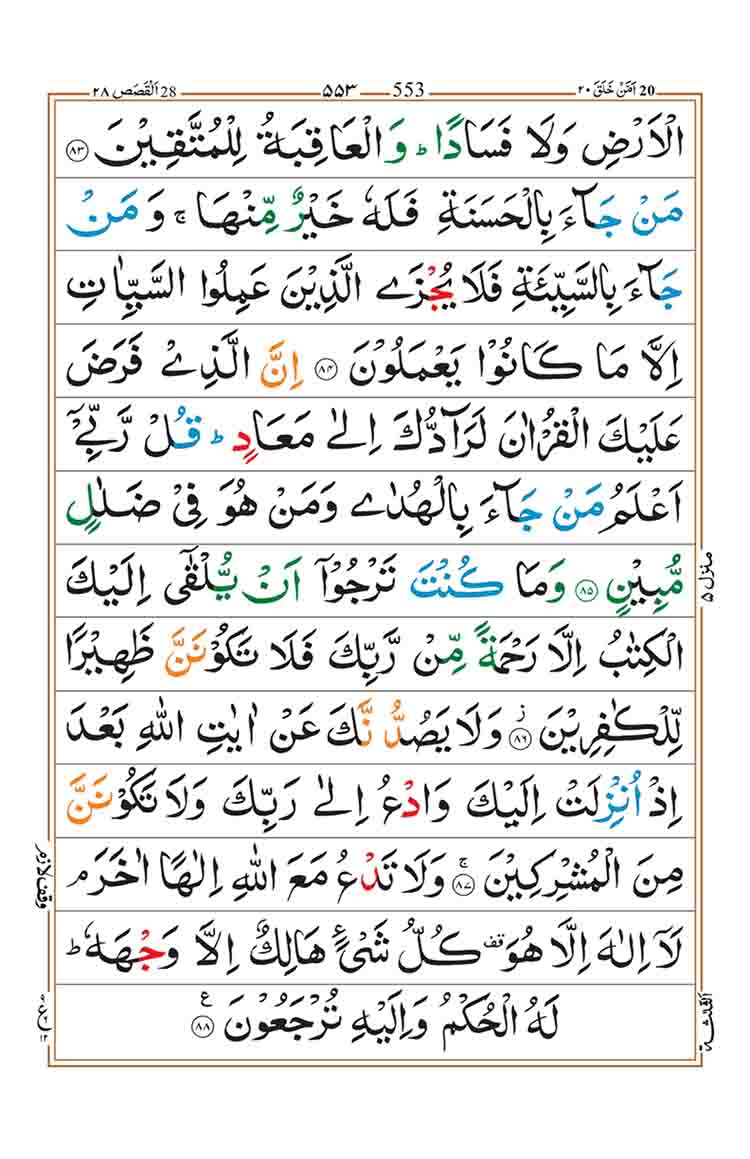 20 اَمَّنْ خَلَقَ ٢٠ 553 ۵۵۳ 28 اَلْقَصَص ٢٨
الْاَرْضِ وَلَا فَسَادًا ؕ وَالْعَاقِبَةُ لِلْمُتَّقِيْنَ ﴿۸۳﴾
مَنْ جَآءَ بِالْحَسَنَةِ فَلَهٗ خَيْرٌ مِّنْهَا ۚ وَ مَنْ
جَآءَ بِالسَّيِّئَةِ فَلَا يُجْزَى الَّذِيْنَ عَمِلُوا السَّيِّاٰتِ
اِلَّا مَا كَانُوْا يَعْمَلُوْنَ ﴿۸۴﴾ اِنَّ الَّذِيْ فَرَضَ
عَلَيْكَ الْقُرْاٰنَ لَرَآدُّكَ اِلٰى مَعَادٍ ؕ قُلْ رَّبِّيْۤ
اَعْلَمُ مَنْ جَآءَ بِالْهُدٰى وَمَنْ هُوَ فِيْ ضَلٰلٍ
مُّبِيْنٍ ﴿۸۵﴾ وَمَا كُنْتَ تَرْجُوْۤا اَنْ يُّلْقٰۤى اِلَيْكَ
الْكِتٰبُ اِلَّا رَحْمَةً مِّنْ رَّبِّكَ فَلَا تَكُوْنَنَّ ظَهِيْرًا
لِّلْكٰفِرِيْنَ ﴿۸۶﴾ ز وَلَا يَصُدُّنَّكَ عَنْ اٰيٰتِ اللّٰهِ بَعْدَ
اِذْ اُنْزِلَتْ اِلَيْكَ وَادْعُ اِلٰى رَبِّكَ وَلَا تَكُوْنَنَّ
مِنَ الْمُشْرِكِيْنَ ﴿۸۷﴾ ۚ وَلَا تَدْعُ مَعَ اللّٰهِ اِلٰهًا اٰخَرَ ۘ
لَآ اِلٰهَ اِلَّا هُوَ قف كُلُّ شَيْءٍ هَالِكٌ اِلَّا وَجْهَهٗ ؕ
لَهُ الْحُكْمُ وَاِلَيْهِ تُرْجَعُوْنَ ﴿۸۸﴾ ع
منزل ۵
وقف لازم